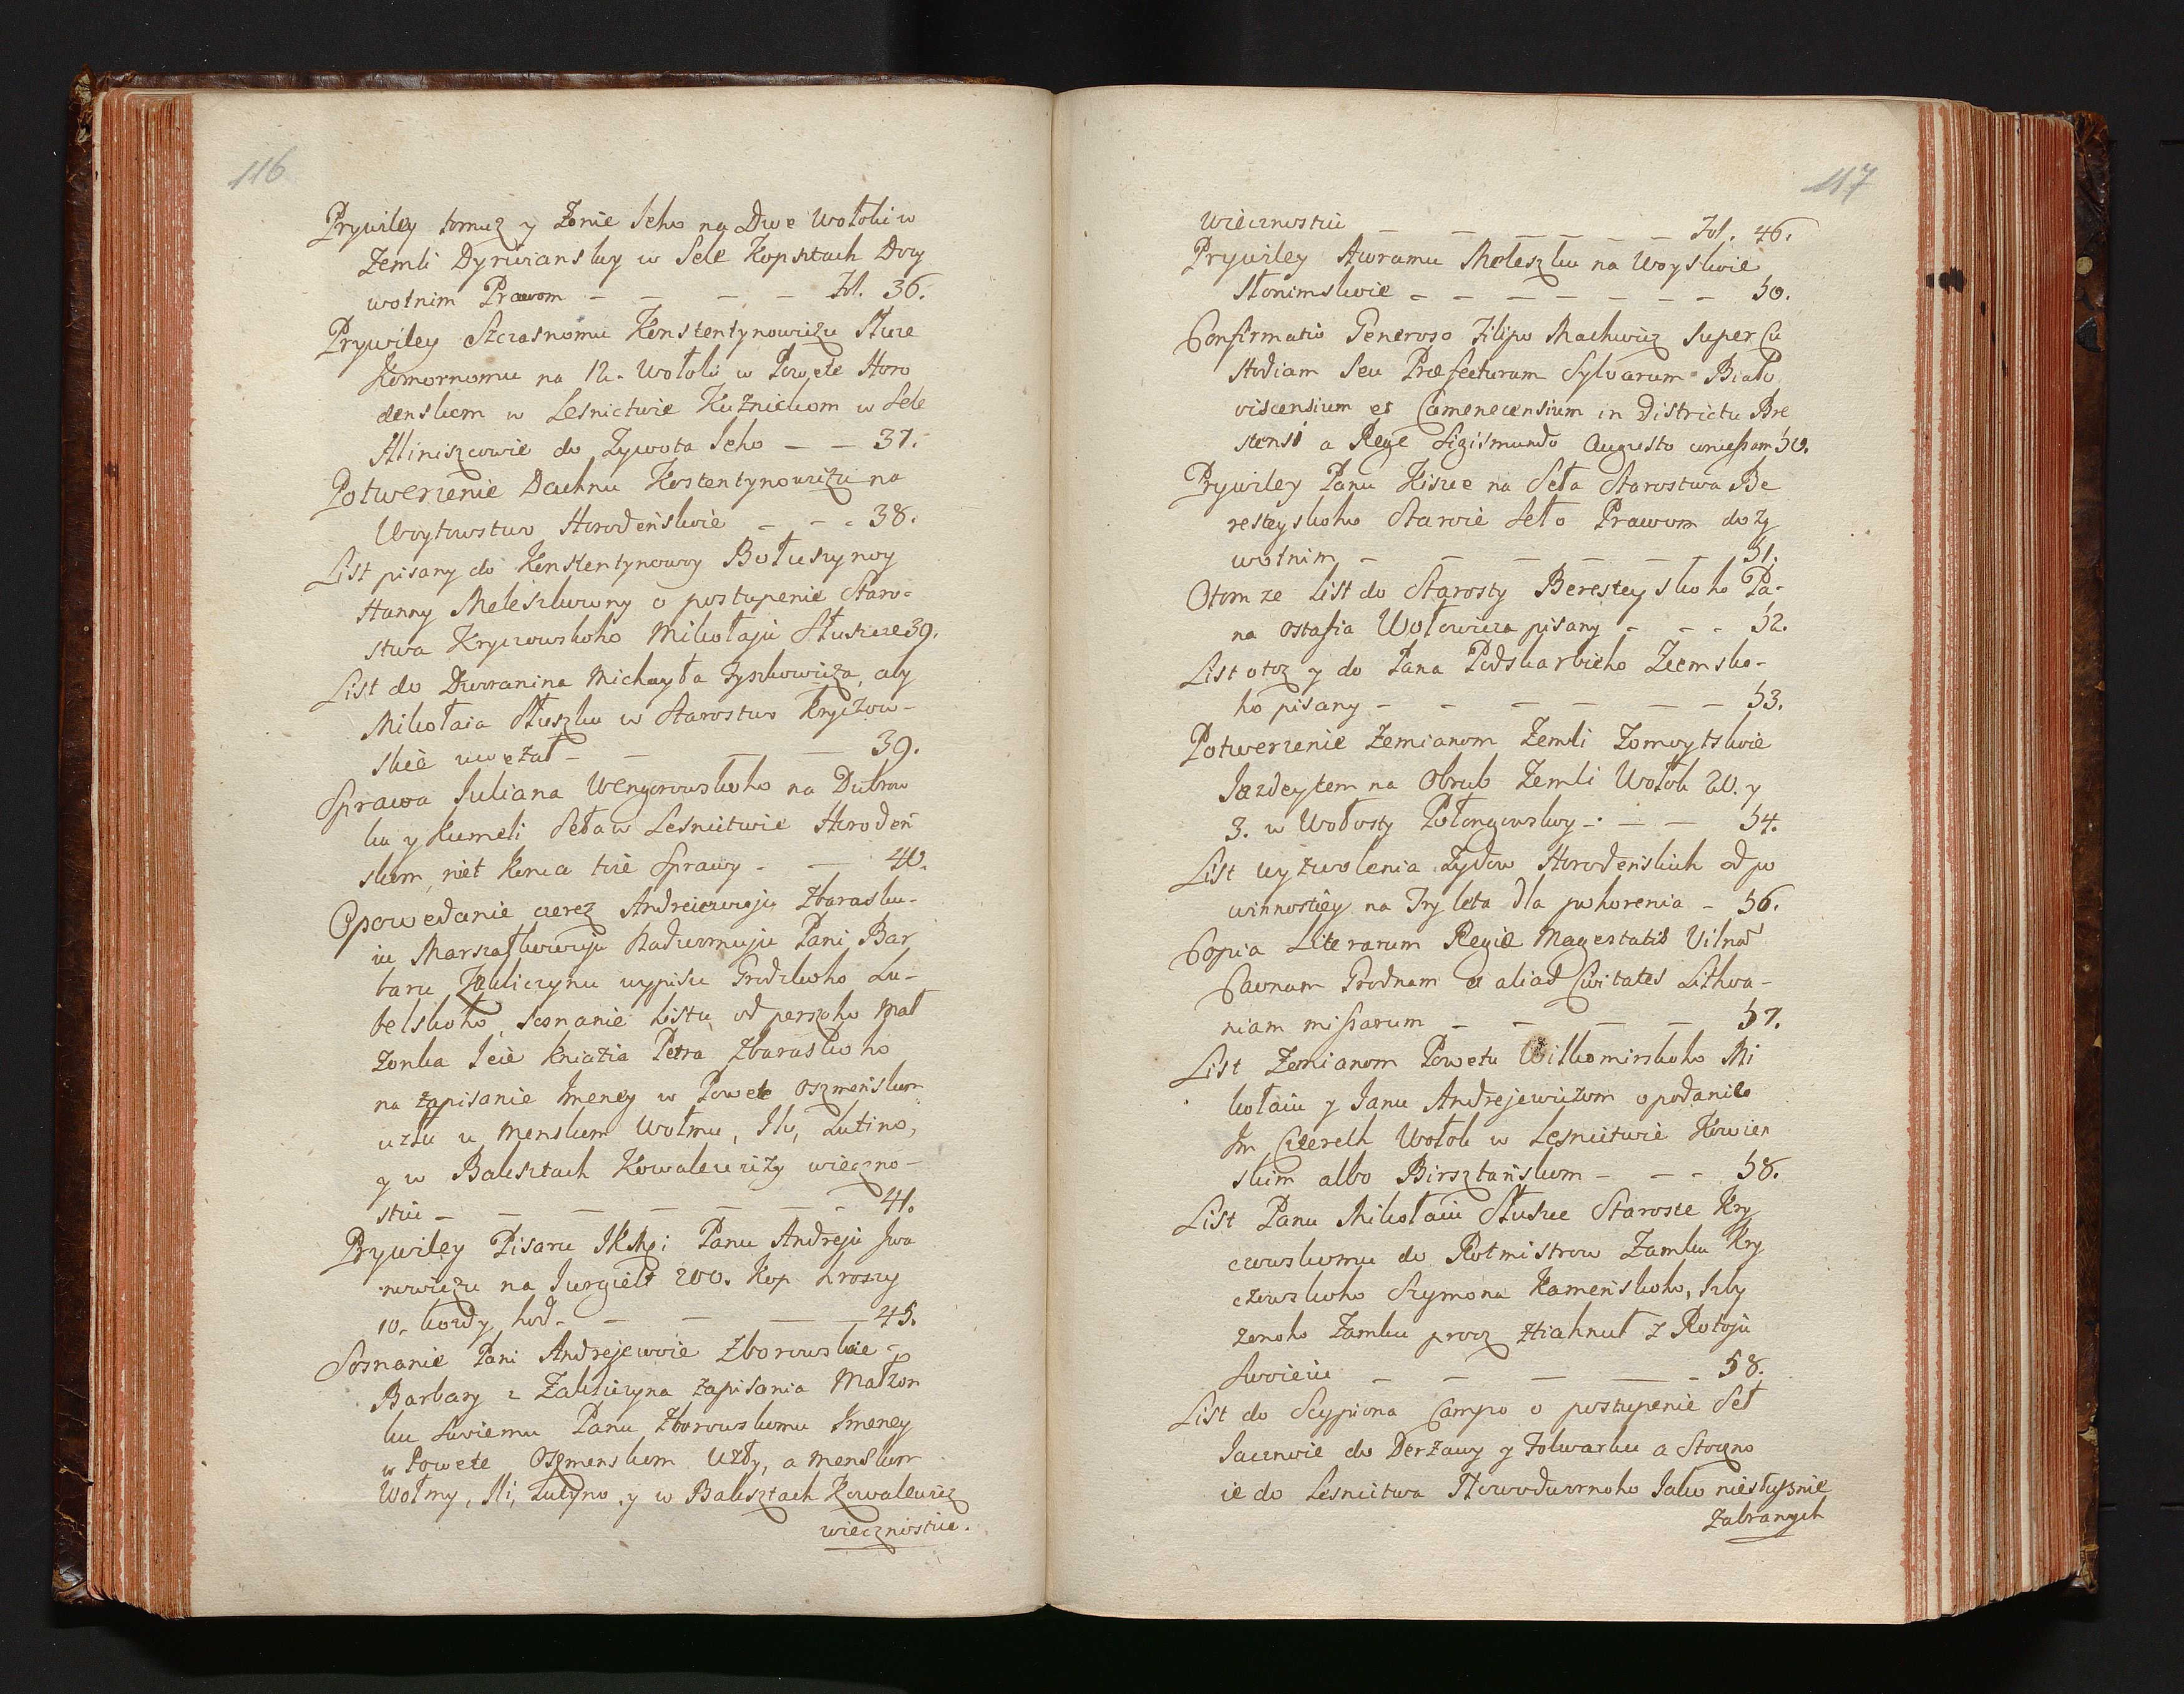 116
Prywiley tomuż y Żonie Jeho na Dwe Wołoki w
Zemli Dyrwianskoy w Sele Kopsztach Doży
wotnim Prawom – – – – Fol. 36.
Prywiley Szczasnomu Konstentynowiczu Sture
Komornomu na 12. Wołok w Powete Horo
denskom w Lesnictwie Kużnickom w Sele
Hliniszczowie do Żywota Jeho – – 37.
Potwerzenie Dachnu Kostentynowiczu na
Woytowstwo Horodeńskoie – – – 38.
List pisany do Konstentynowoy Bołuszynoy
Hanny Meleszkowny o postupenie Staro-
stwa Kryczowskoho Mikołaju Słuszce 39.
List do Dworanina Michayła Tyszkowicza, aby
Mikołaia Słuszku w Starostwo Kryczow-
skie uwezał – – – – 39.
Sprawa Juliana Wengorowskoho na Dubrow
ku y Kumeli Seła w Lesnictwie Horodeń
skom, niet konca toie Sprawy – – 40.
Opowedanie czerez Andreiewuju Zbarasku-
iu Marszałkowuju Nadwornuju Pani Bar
baru Zakliczynu wypisu Grodzkoho Lu-
belskoho, Soznanie Listu od perszoho Mał
żonka Jeie Kniazia Petra Zbaraskoho
na zapisanie Imeney w Powete Oszmeńskom
uzłu u Menskom Wołmu, Ilu, Lutino,
y w Baksztach Kowalewiczy wieczno-
stiu – – – – – – – 41.
Prywiley Pisaru JKMci Panu Andreju Iwa
nowiczu na Jurgielt 200. Kop hroszy
10. kożdy hod – – – – – 45.
Soznanie Pani Andrejewoie Zborowskoie
Barbary z Zakliczyna zapisania Małżon
ku Swoiemu Panu Zborowskomu Imeney
w Powete Oszmenskom Uzły, a Menskom
Wołmy, Ili, Lutyno, y w Baksztach Kowalewicz
wiecznostiu.
117
wiecznostiu – – – – – – Fol. 46.
Prywiley Awramu Meleszku na Woyskoie
Słonimskoie – – – – – – – 50.
Confirmatio Generoso Filipo Machwicz super Cu
stodiam seu Præfecturam Sylvarum Biało
viscensium et Camenecensium in Districtu Bre
stensi a Rege Sigismundo Augusto concessam 50.
Prywiley Panu Kiszce na Seła Starostwa Be
resteyskoho Staroie Seło Prawom doży
wotnim – – – – – – 51.
O tom ze List do Starosty Beresteyskoho Pa-
na Ostafia Wołowicza pisany – – – 52.
List o toż y do Pana Podskarbieho Zemsko-
ho pisany – – – – – – 53.
Potwerzenie Zemianom Zemli Żomoytskoie
Jazdeytem na Obrub Zemli Wołok 20. y
3. w Wołosty Połongowskoy – – – 54.
List wyzwolenia Żydow Horodeńskich od po
winnostiey na Try leta dla pohorenia – 56.
Copia Literarum Regiæ Magestatis Vilnam
Caunam Grodnam et alias Civitates Lithva-
niam missarum – – – – 57.
List Zemianom Powetu Wilkomirskoho Mi
kołaiu y Janu Andrejewiczom o podanie
Im Czterech Wołok w Lesnictwie Kowien
skim albo Birsztańskom – – – 58.
List Panu Mikołaiu Słuszce Staroste Kry
czowskomu do Rotmistrow Zamku Kry
czowskoho Szymona Kameńskoho, sztoby
z onoho Zamku procz ztiahnuł z Rotoju
Swoieiu – – – – – 58.
List do Scypiona Campo o postupenie Seł
Jacznoie do Derżawy y Folwarku a Stoczno
ie do Lesnictwa Nowodwornoho Jako niesłusznie
Zabranych